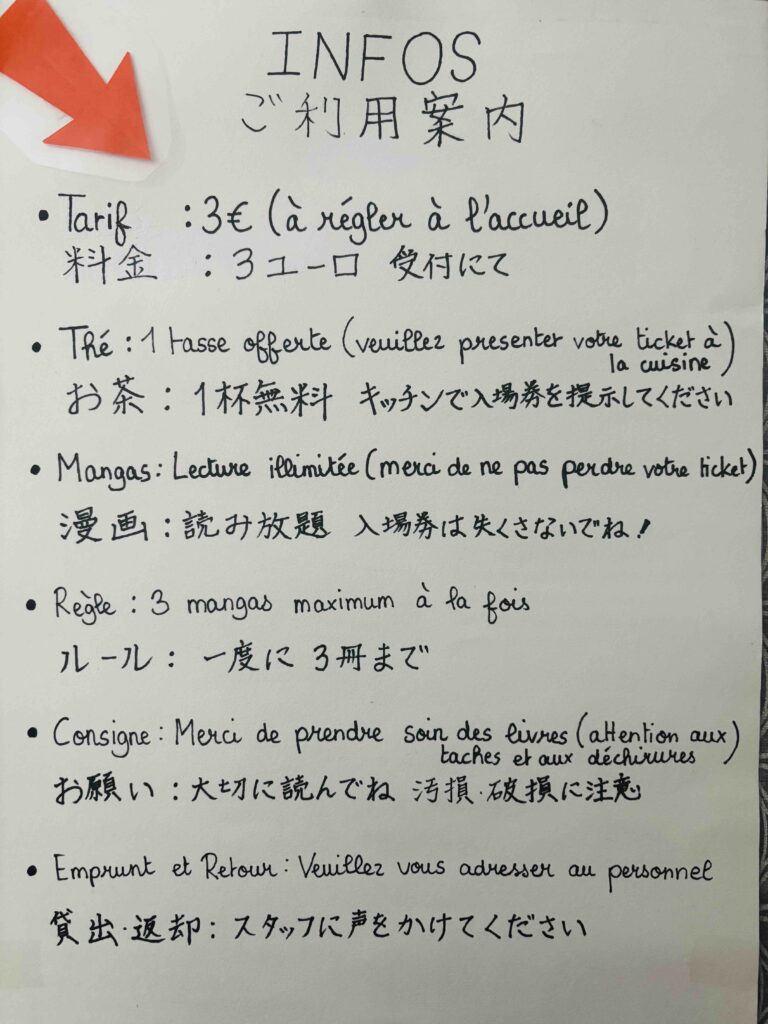 INFOS
ご利用案内
• Tarif : 3€ (à régler à l'accueil)
料金 : 3ユーロ 受付にて
• Thé : 1 tasse offerte (veuillez presenter votre ticket à
la cuisine)
お茶 : 1杯無料 キッチンで入場券を提示してください
• Mangas : Lecture illimitée (merci de ne pas perdre votre ticket)
漫画 : 読み放題 入場券は失くさないでね!
• Règle : 3 mangas maximum à la fois
ルール : 一度に 3冊まで
• Consigne : Merci de prendre soin des livres (attention aux
taches et aux déchirures)
お願い : 大切に読んでね 汚損・破損に注意
• Emprunt et Retour : Veuillez vous adresser au personnel
貸出・返却 : スタッフに声をかけてください